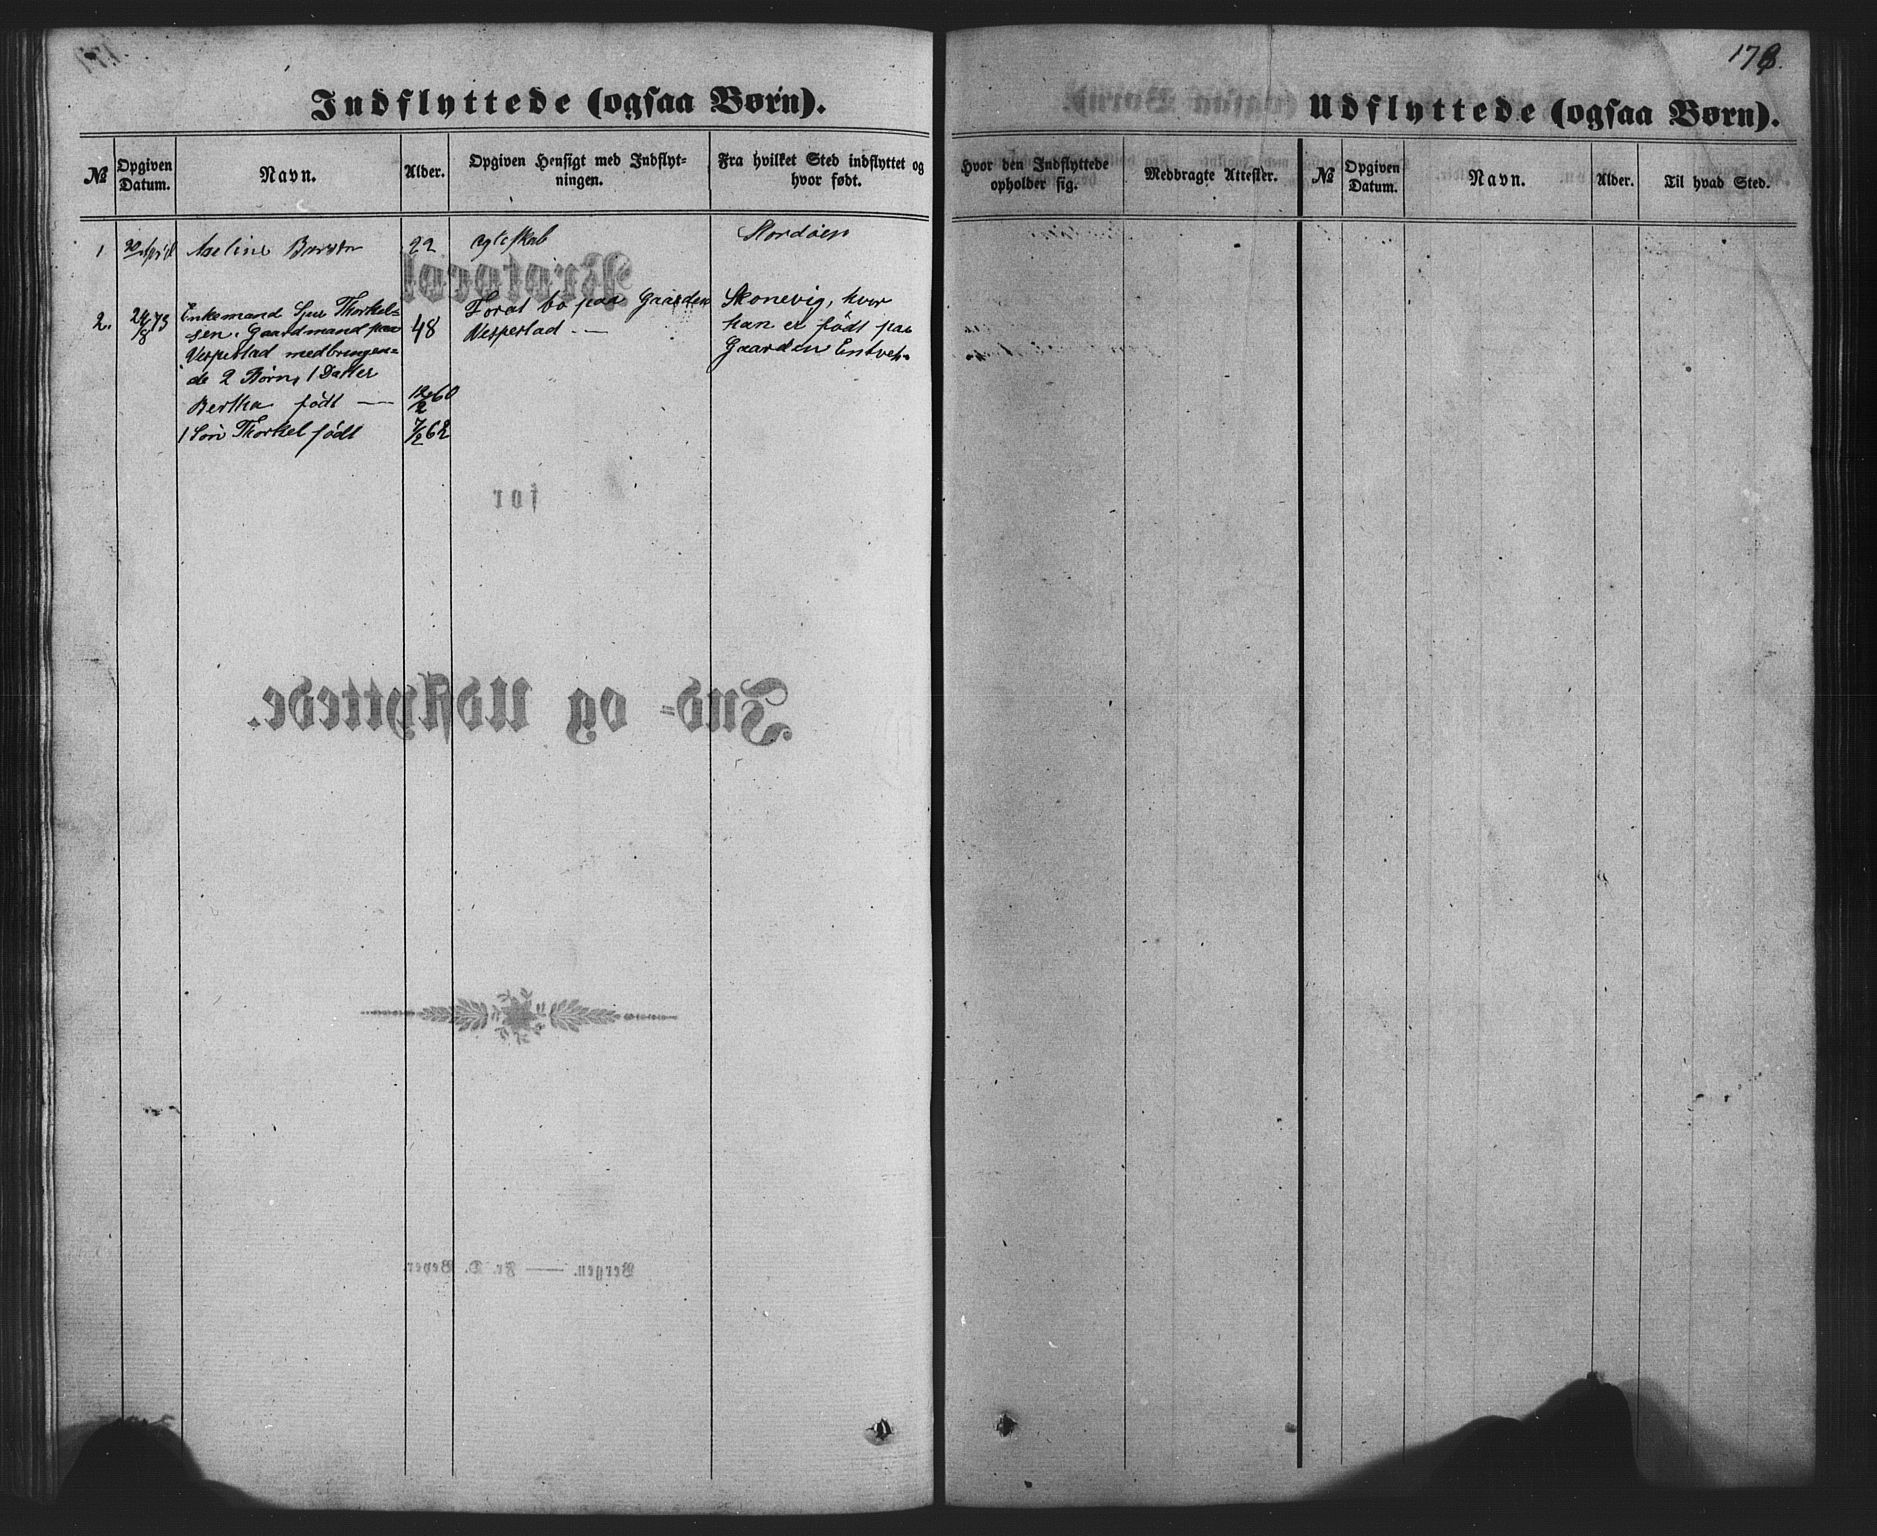 Indflyttede (ogsaa Børn).
№
Opgiven Datum.
Navn.
Alder.
Opgiven Hensigt med Indflyt-
ningen.
Fra hvilket Sted indflyttet og
hvor født.
1
30 April
22
Ægteskab
Stordøen
2.
24/8 73
Enkemand Sjur Thorkel=
sen, Gaardmand paa
Vespestad medbringen=
de 2 Børn, 1 Datter
Bertha født —
1 Søn Thorkel født
48
12/2 60
7/2 62
For at bo paa Gaarden
Vespestad —
Skonevig, hvor
han er født paa
Gaarden
Protocol
for
Ind= og Udflyttede.
Bergen. — Fr. D. Beyer.
178.
Udflyttede (ogsaa Børn).
Hvor den Indflyttede
opholder sig.
Meddragte Attester.
№
Opgiven
Datum.
Navn.
Alder.
Til hvad Sted.